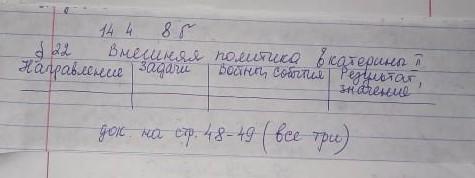 14 4 8 б
§ 22 Внешняя политика Екатерины II
Направление Задачи Войны, события Результат,
значение
док. на стр. 48-49 (все три)